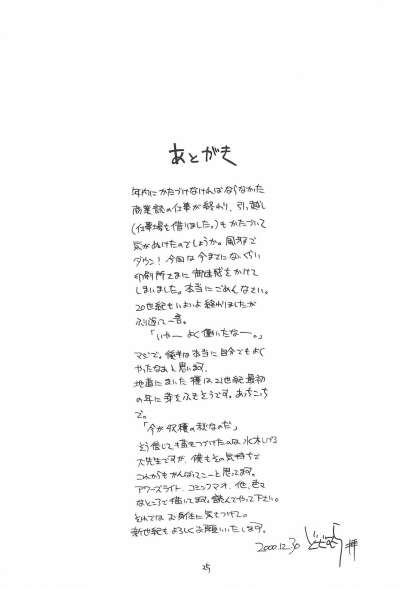 あとがき
年内にかたづけなければならなかった
商業誌の仕事が終わり、引っ越し
(仕事場を借りました。)もかたづいて
気がぬけたのでしょうか。風邪で
ダウン！今回は今までにないくらい
印刷所さまに御迷惑をかけて
しまいました。本当にごめんなさい。
20世紀もいよいよ終わりましたが
ふり返って一言。
「いやーよく働いたなー。」
マジで。後半は本当に自分でもよく
やったなあと思います。
地道にまいた種は21世紀最初
の年に芽をふきそうです。あちこち
で。
「今が収穫の秋なのだ」
そう信じて描きつづけたのは水木しげる
大先生ですが、僕もその気持ちで
これからもがんばってこーと思ってます。
アワーズライト、コミックマオ、他、色々
なところで描いてます。読んでやって下さい。
それでは お身体に気をつけて。
新世紀もよろしくお願いいたします。
2000.12.30
拝
25